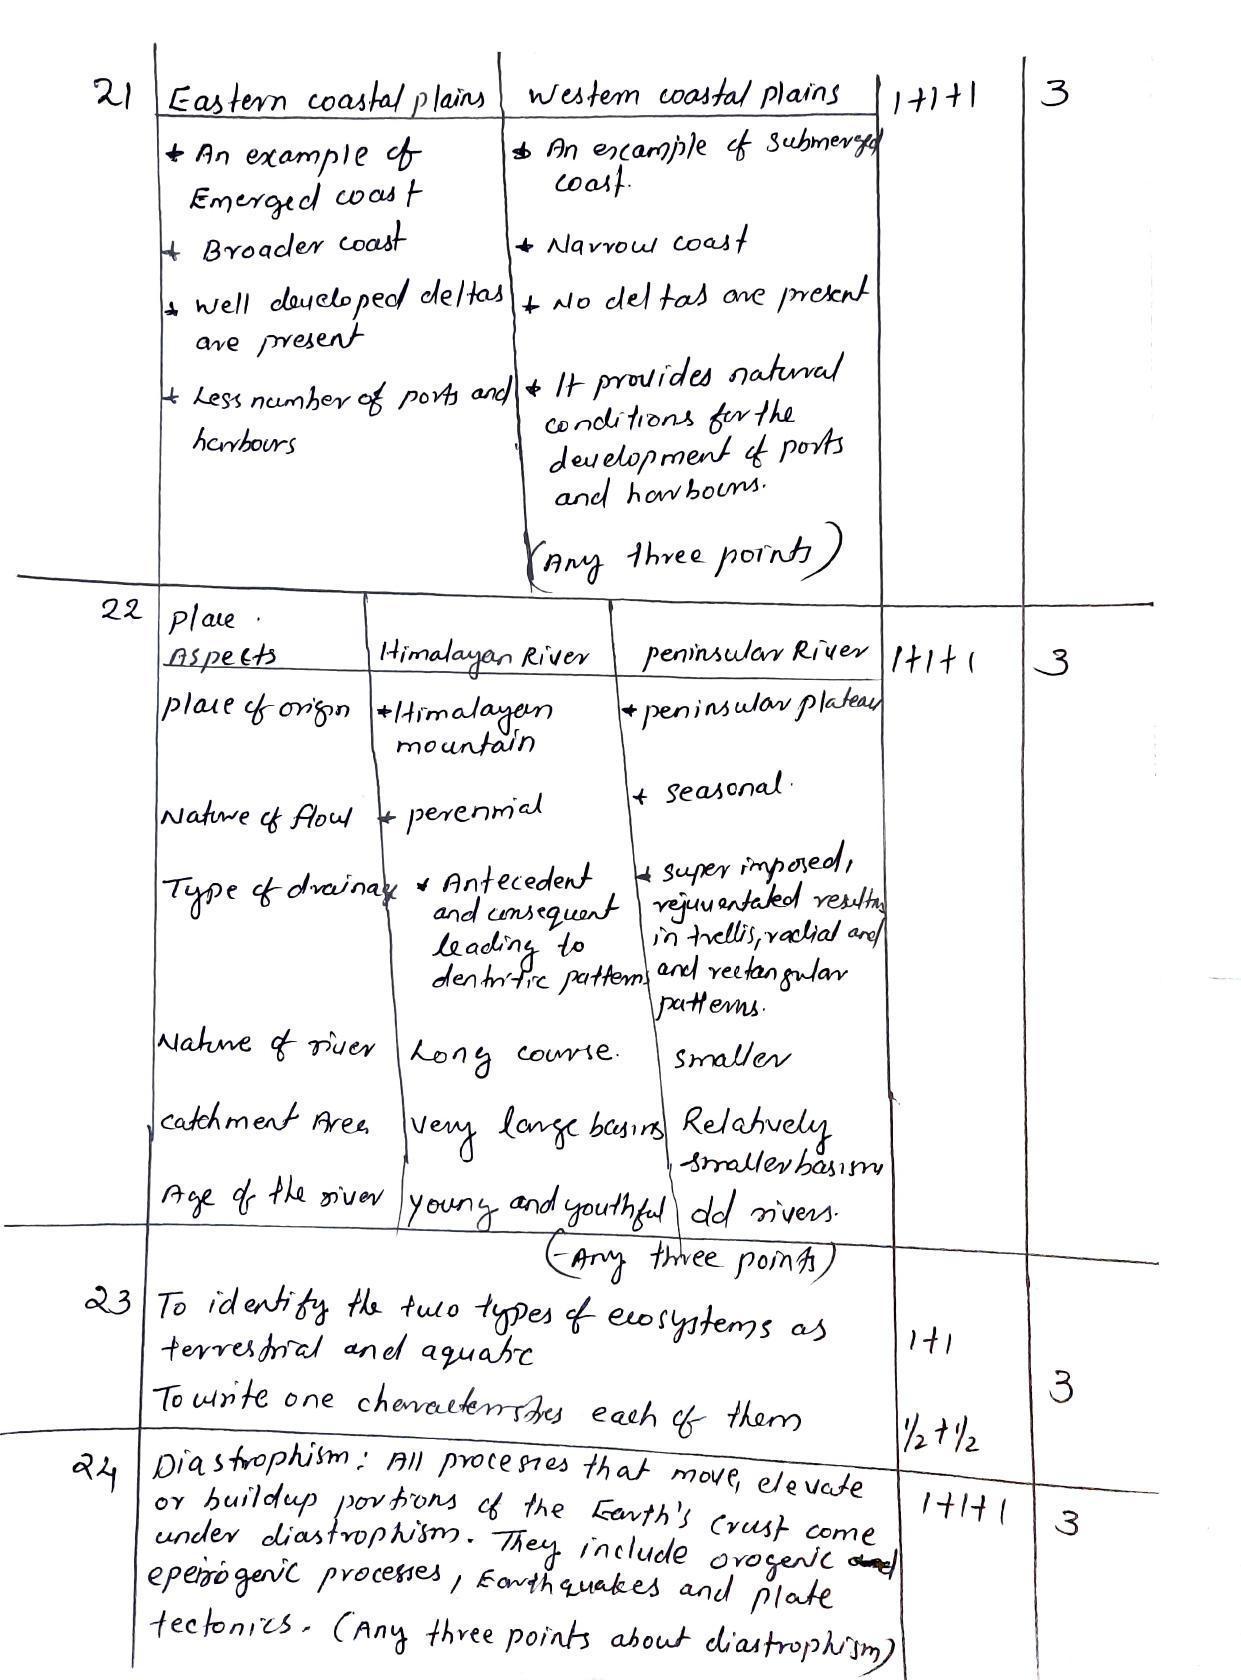 21 Eastern coastal plains Western coastal plains 1+1+1 3
* An example of * An example of submerged
Emerged coast coast.
* Broader coast * Narrow coast
* well developed deltas * No deltas are present
are present
* Less number of ports and * It provides natural
harbours conditions for the
development of ports
and harbours.
(Any three points)
22 Place.
Aspects Himalayan River peninsular River 1+1+1 3
place of origin * Himalayan * peninsular plateau
mountain
Nature of flow * perennial * seasonal.
Type of drainage * Antecedent * super imposed,
and consequent rejuventated resulting
leading to in trellis, radial and
dentritic patterns and rectangular
patterns.
Nature of river Long course. smaller
catchment Area very large basins Relatively
smaller basism
Age of the river young and youthful old rivers.
(Any three points)
23 To identify the two types of ecosystems as 1+1
terrestrial and aquatic 3
To write one characteristics each of them 1/2+1/2
24 Diastrophism: All processes that move, elevate 1+1+1 3
or buildup portions of the Earth's crust come
under diastrophism. They include orogenic and
epeirogenic processes, Earthquakes and plate
tectonics. (Any three points about diastrophism)